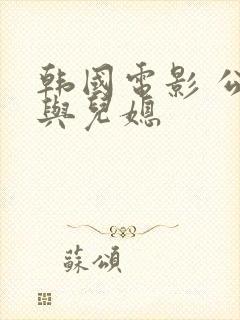 韩國電影 公
與兒媳
蘇頌